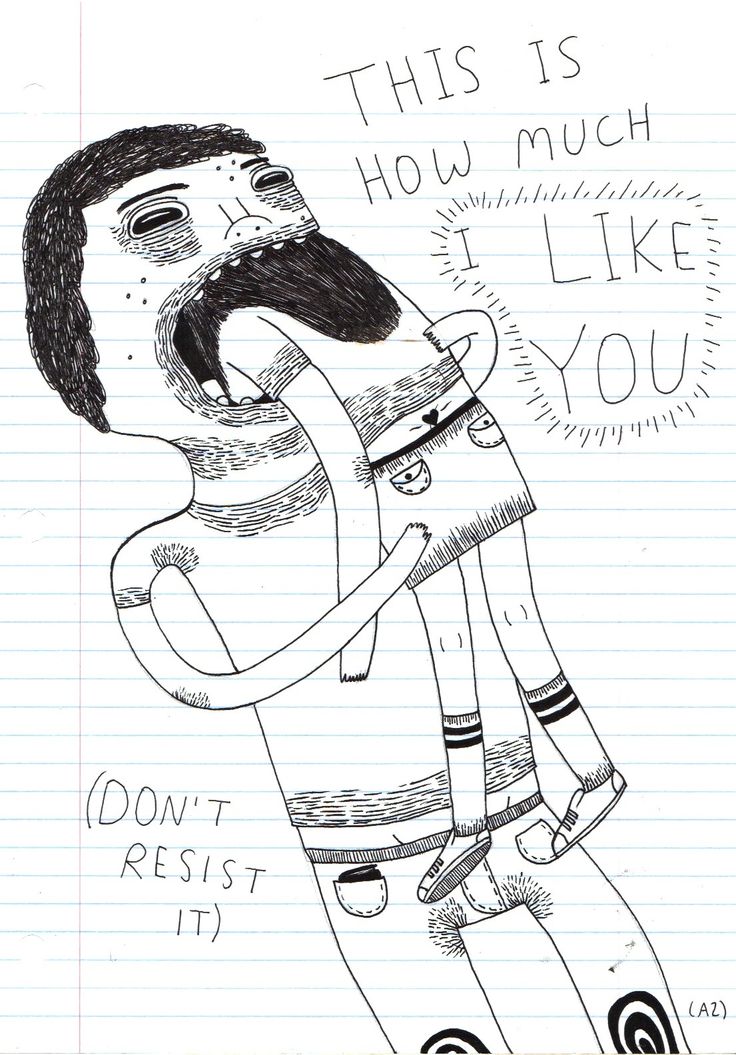 THIS IS
HOW MUCH
I LIKE
YOU
(DON'T
RESIST
IT)
(AZ)